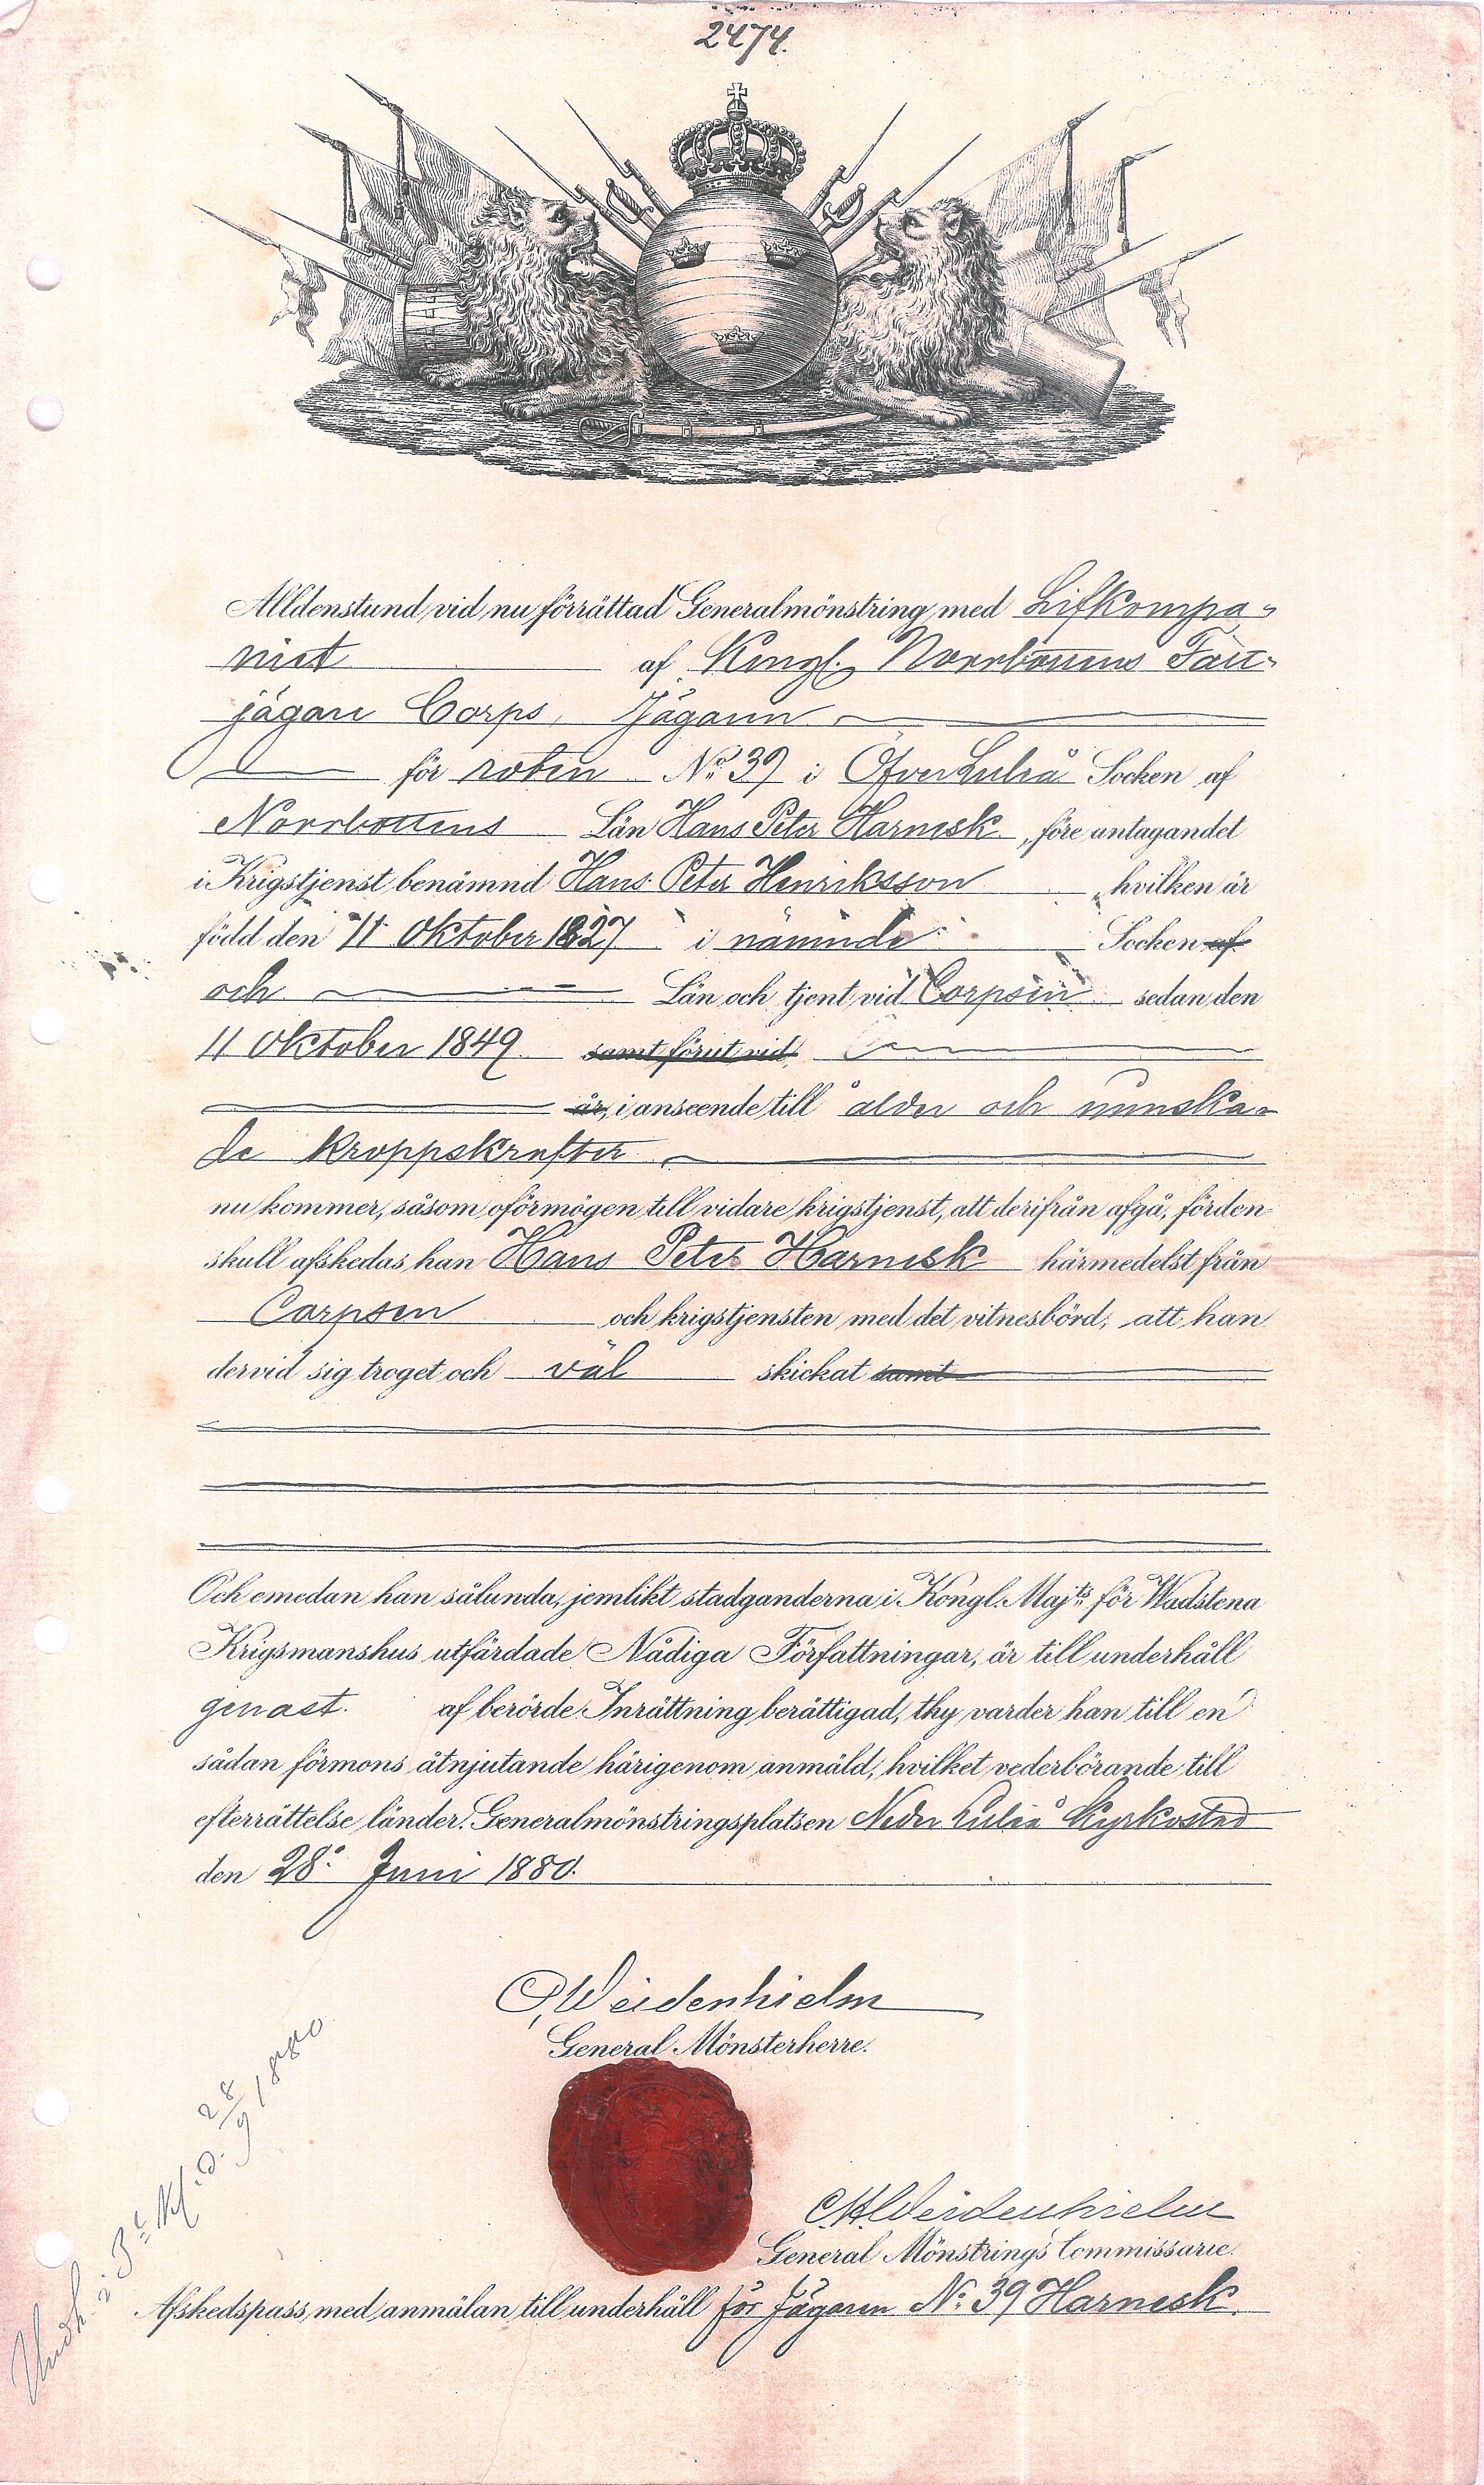 2474.
Alldenstund vid nu förrättad Generalmönstring med Lifkompa-
niet af Kongl. Norrbottens Fält-
jägare Corps, Jägaren
för roten No 39 i Öfverluleå Socken af
Norrbottens Län Hans Peter Harnesk, före antagandet
i Krigstjenst benämnd Hans Peter Henriksson, hvilken är
född den 11 Oktober 1827 i nämnde Socken af
och Län och tjent vid Corpsen sedan den
11 Oktober 1849 samt förut vid
är, i anseende till ålder och minska-
de kroppskrafter
nu kommer, såsom oförmögen till vidare krigstjenst, att derifrån afgå, förden-
skull afskedas han Hans Peter Harnesk härmedelst från
Corpsen och krigstjensten med det vitnesbörd, att han
dervid sig troget och väl skickat samt
Och emedan han sålunda, jemlikt stadganderna i Kongl. Majts för Wadstena
Krigsmanshus utfärdade Nådiga Författningar, är till underhåll
genast. af berörde Inrättning berättigad, thy varder han till en
sådan förmons åtnjutande härigenom anmäld, hvilket vederbörande till
efterrättelse länder. Generalmönstringsplatsen Neder Luleå Kyrkostad
den 28: Juni 1880.
Weidenhielm
General Mönsterherre.
Weidenhielm
General Mönstrings Commissarie.
Afskedspass med anmälan till underhåll för Jägaren No 39 Harnesk.
Undh. i 3e Kl. d. 28/9 1880